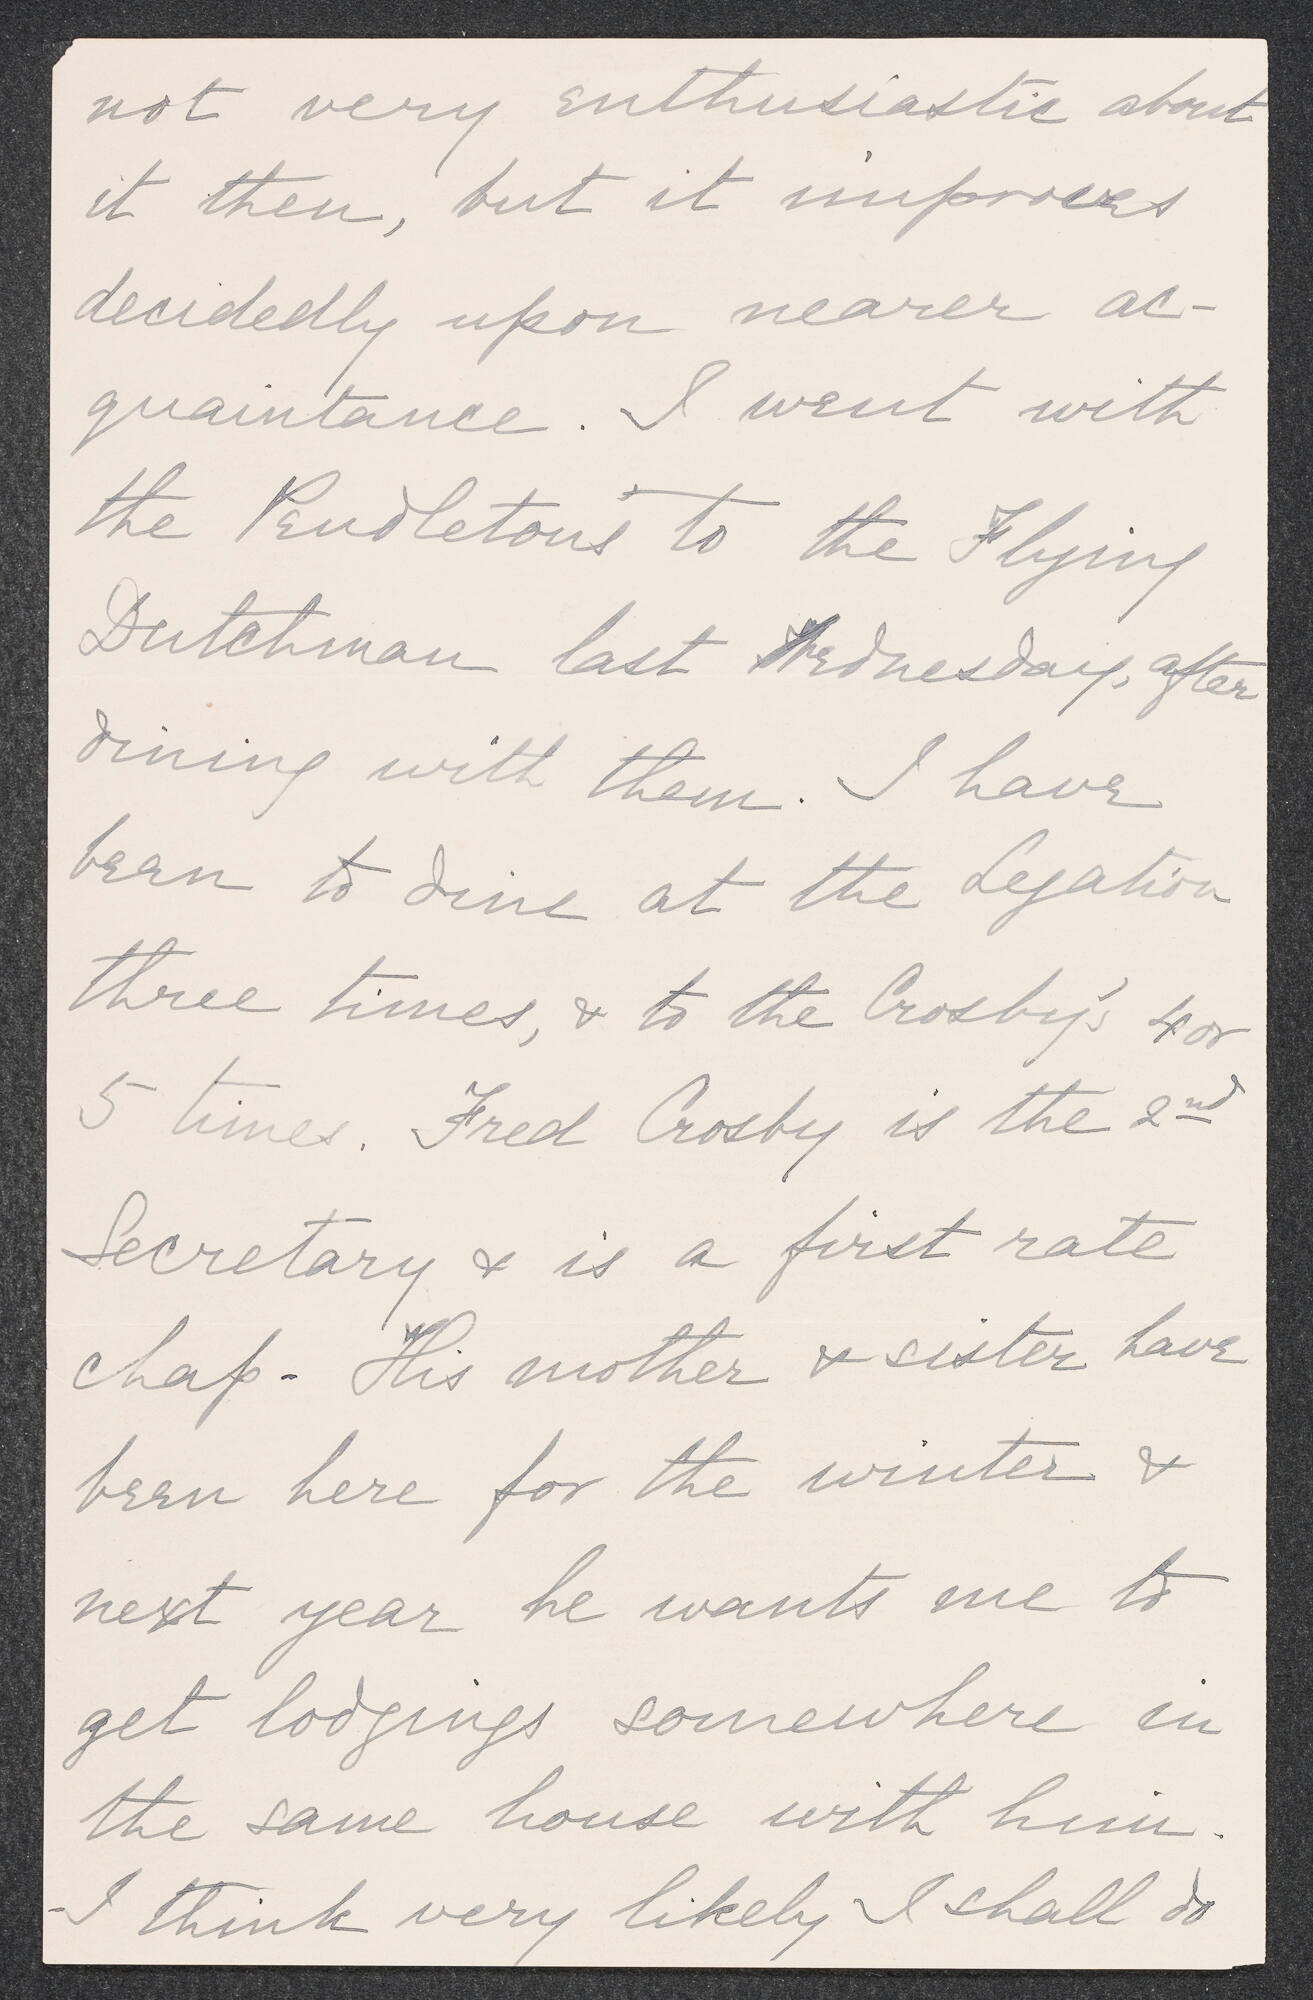 not very enthusiastic about
it then, but it improves
decidedly upon nearer ac-
quaintance. I went with
the Pendletons to the Flying
Dutchman last Wednesday, after
dining with them. I have
been to dine at the Legation
three times, & to the Crosby's 4 or
5 times. Fred Crosby is the 2nd
Secretary & is a first rate
chap - His mother & sister have
been here for the winter &
next year he wants me to
get lodgings somewhere in
the same house with him.
- I think very likely I shall do